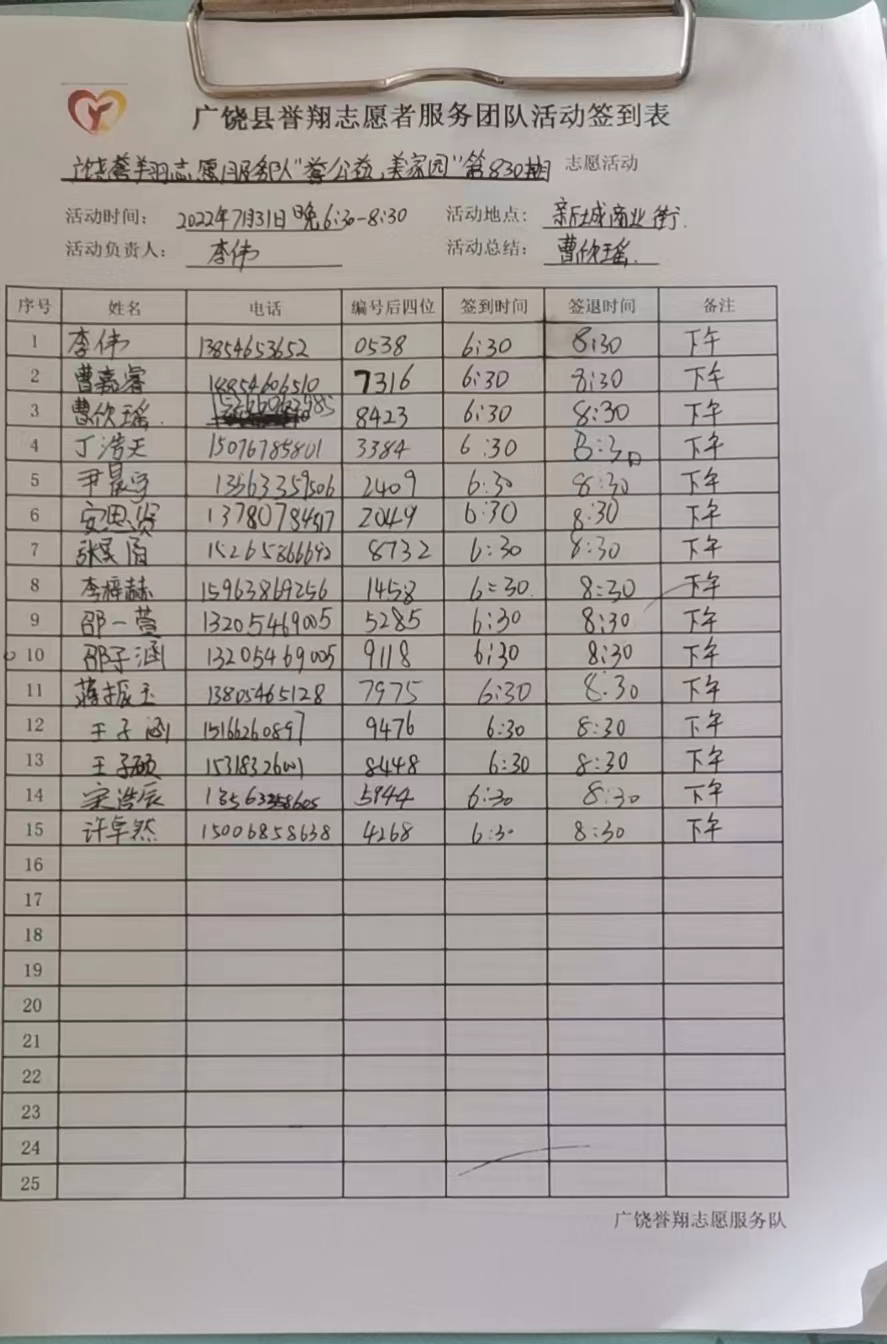 广饶县誉翔志愿者服务团队活动签到表
广饶誉翔志愿服务队"誉公益,美家园"第830期 志愿活动
活动时间: 2022年7月31日晚6:30-8:30 活动地点: 新城商业街.
活动负责人: 李伟 活动总结: 曹欣瑶.
序号 姓名 电话 编号后四位 签到时间 签退时间 备注
1 李伟 13854653652 0538 6:30 8:30 下午
2 曹嘉睿 7316 6:30 8:30 下午
3 曹欣瑶. 8423 6:30 8:30 下午
4 丁浩天 15076785801 3384 6:30 8:30 下午
5 尹晨宇 13563359506 2409 6:30 8:30 下午
6 安思贤 2049 6:30 8:30 下午
7 15265866692 8732 6:30 8:30 下午
8 李梓赫 15963869256 1458 6:30 8:30 下午
9 邵一萱 13205469005 5285 6:30 8:30 下午
10 邵子涵 13205469005 9118 6:30 8:30 下午
11 蒋振玉 13805465128 7975 6:30 8:30 下午
12 王子涵 15166260897 9476 6:30 8:30 下午
13 王子硕 15318326001 8448 6:30 8:30 下午
14 宋浩辰 5944 6:30 8:30 下午
15 许卓然 15006858638 4268 6:30 8:30 下午
16
17
18
19
20
21
22
23
24
25
广饶誉翔志愿服务队